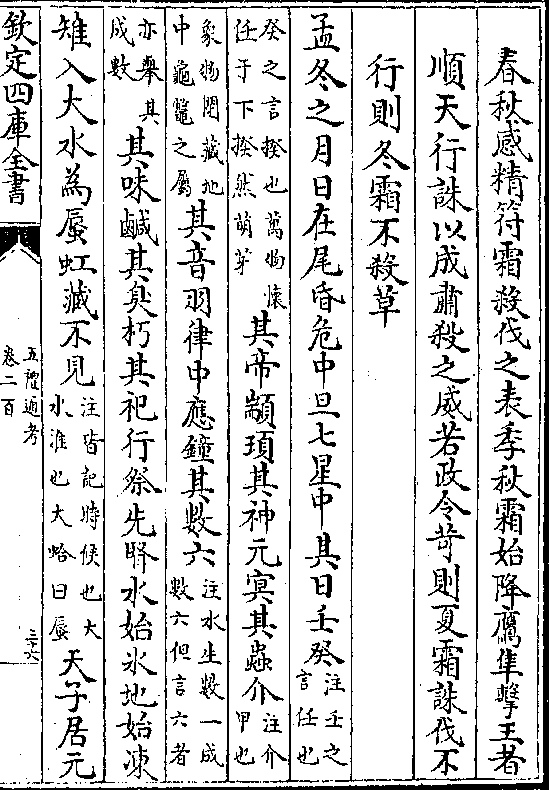 春秋感精符霜殺伐之表季秋霜始降鷹隼擊王者
順天行誅以成肅殺之威若政令苛則夏霜誅伐不
行則冬霜不殺草
孟冬之月日在尾昏危中旦七星中其日壬癸注壬之言任也
癸之言揆也萬物懷任于下揆然萌芽其帝顓頊其神元冥其蟲介注介甲也
象物閉藏地中龜鼈之屬其音羽律中應鐘其數六注水生數一成數六但言六者
亦舉其成數其味鹹其臭朽其祀行祭先腎水始氷地始凍
雉入大水為蜃虹藏不見注皆記時候也大水淮也大蛤曰蜃天子居元
欽定四庫全書
五禮通考
卷二百
三十六